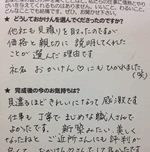 ★どうしておかけんを選んでくださったのですか?
他社も見積りを取ったのですが
価格と親切に説明してくれた
ことが選んだ理由です
社名 おかけん♡にもひかれました(笑)
★完成後の今のお気持ちは?
見違えるほどきれいになって感謝です
仕事も丁寧でまじめな職人さんで
よかったです。新築みたい、美しく
なったねと ご近所さんにも評判が